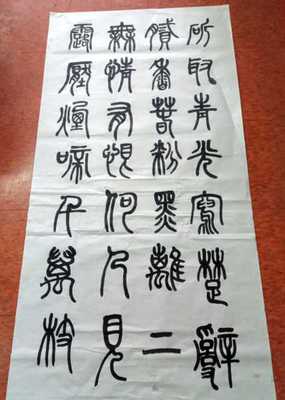 斫取青光寫楚辭
膩香春粉黑離二
無情有恨何人見
露壓煙啼千萬枝